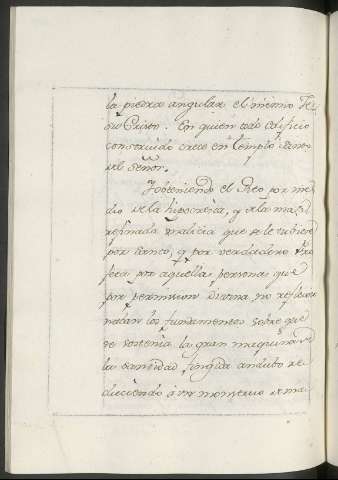 la piedra angular el mismo Je-
su Cristo. En quien todo edificio
construido crece en templo santo
del Señor.
Obteniendo el Reo por me-
dio de la hipocresia, y de la mas
refinada malicia que se le tubiese
por Santo, y por verdadero Pro-
feta por aquellas personas que
por permision Divina, no reflexio-
naban los fundamentos sobre que
se sostenia la gran maquina de
la santidad fingida anduvo se-
duciendo á un monstruo de ma-